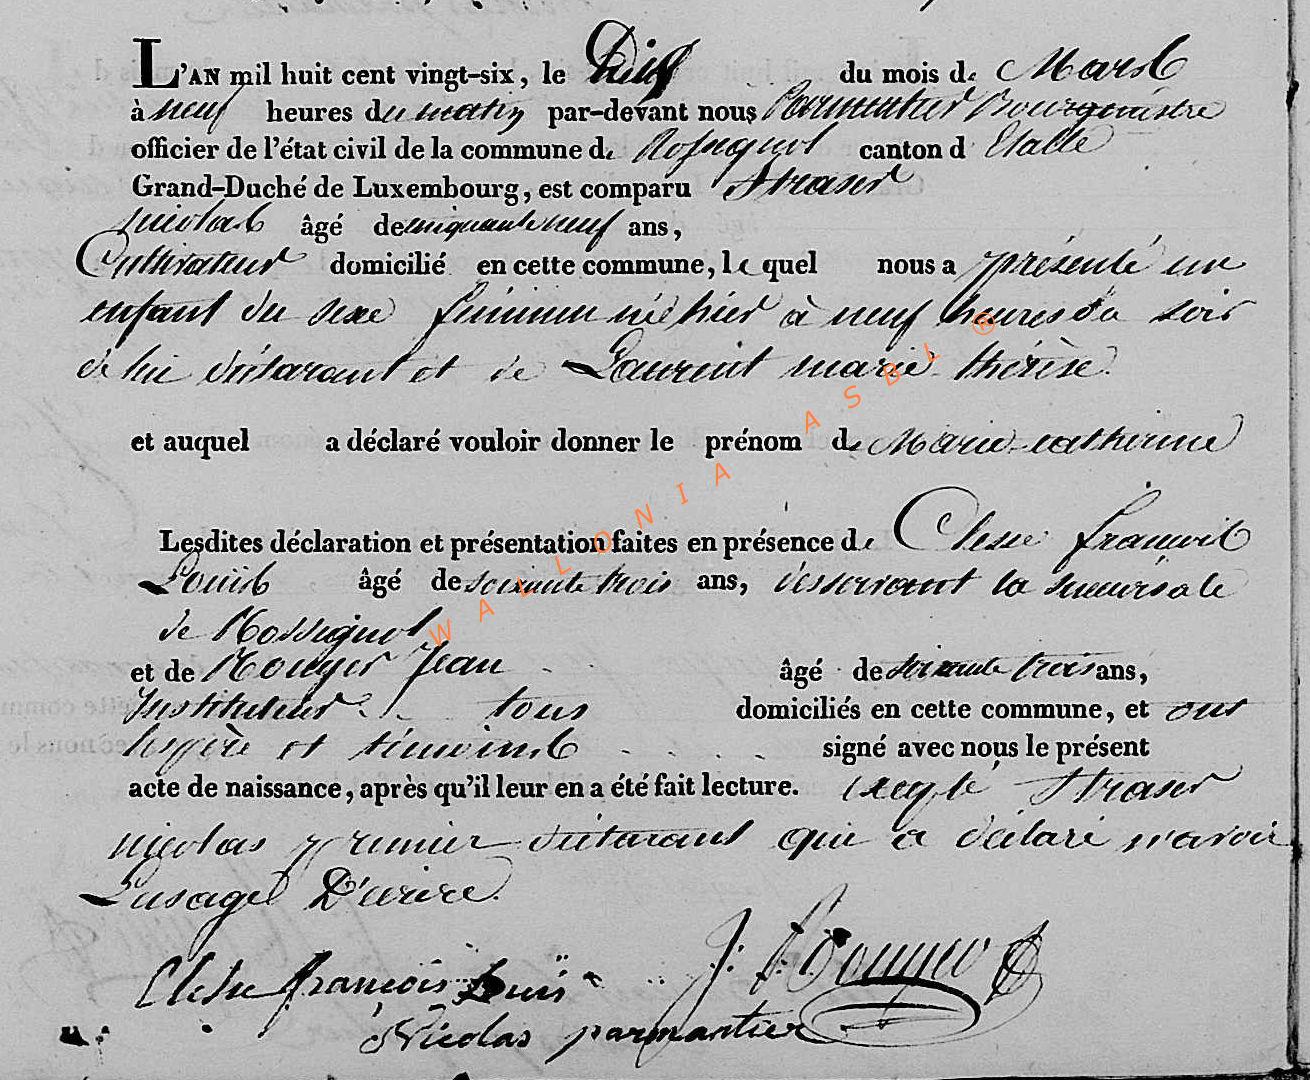 L'AN mil huit cent vingt-six, le Dix du mois de Mars
à neuf heures du matin par-devant nous Parmentier Bourgmestre
officier de l'état civil de la commune de Rossignol canton d'Etalle
Grand-Duché de Luxembourg, est comparu Straser
nicolas âgé de cinquante neuf ans,
Cultivateur domicilié en cette commune, le quel nous a présenté un
enfant du sexe féminin né hier à neuf heures du soir
de lui déclarant et de Laurent marie thérèse
et auquel a déclaré vouloir donner le prénom de Marie catherine
Lesdites déclaration et présentation faites en présence de Clesse françois
Louis âgé de soixante trois ans, desservant la succursale
de Rossignol
et de Rouger Jean âgé de soixante trois ans,
Instituteur tous domiciliés en cette commune, et ont
les père et témoins signé avec nous le présent
acte de naissance, après qu'il leur en a été fait lecture. excepté Straser
nicolas premier déclarant qui a déclaré n'avoir
L'usage D'ecrire.
Clesse françois Louis J. Rouger
Nicolas parmantier
WALLONIA ASBL ®